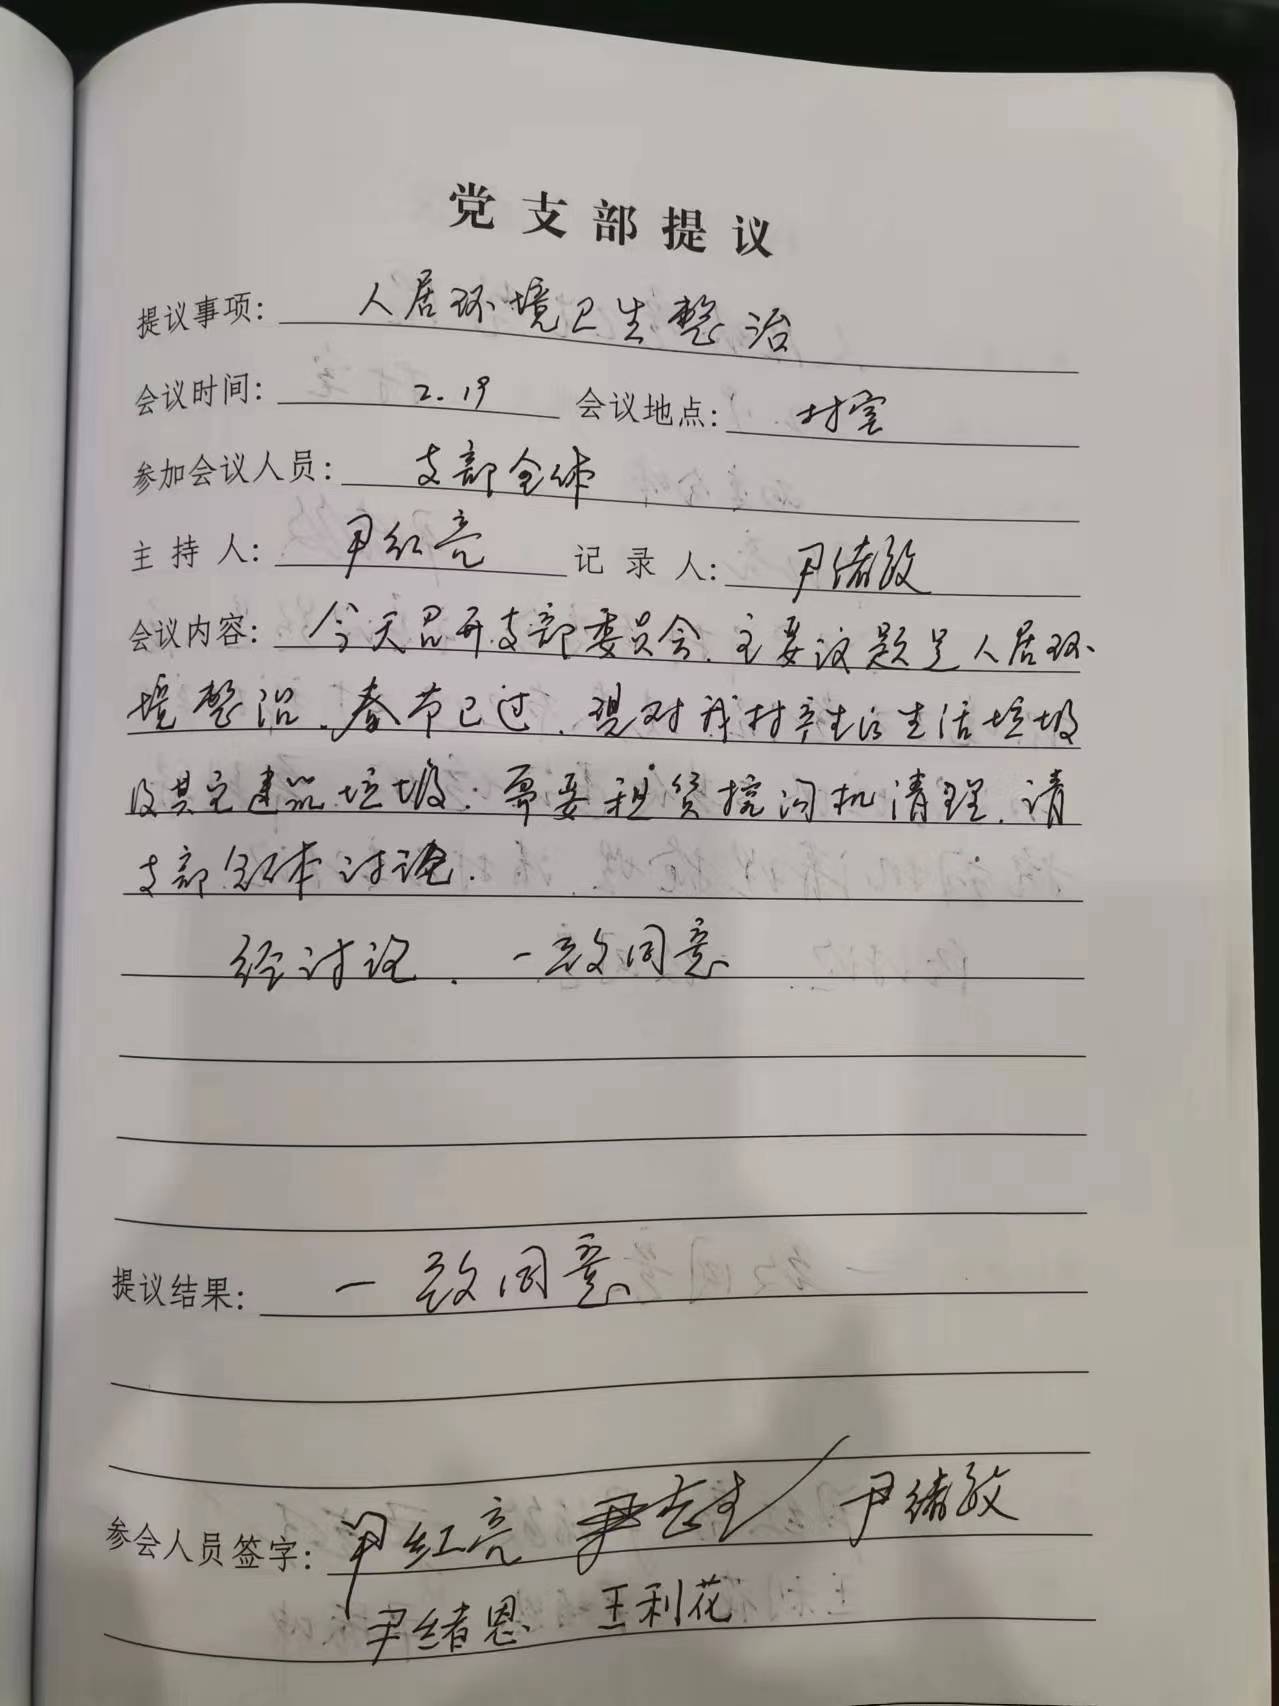 党支部提议
提议事项: 人居环境卫生整治
会议时间: 2.19 会议地点: 村室
参加会议人员: 支部全体
主持人: 尹红亮 记录人: 尹绪敏
会议内容: 今天召开支部委员会.主要议题是人居环
境整治.春节已过.现对我村产生的生活垃圾
及其它建筑垃圾.需要租赁挖沟机清理.请
支部全体讨论.
经讨论.一致同意
提议结果: 一致同意
参会人员签字: 尹红亮 尹绪敏
尹绪恩 王利花